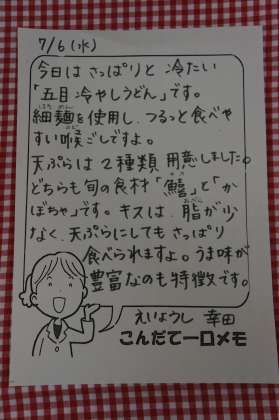 7/6(水)
今日は さっぱりと 冷たい
「五目 冷やしうどん」です。
細麺を使用し、つるっと食べや
すい喉ごしですよ。
天ぷらは 2種類 用意しました。
どちらも旬の食材「鱚」と「か
ぼちゃ」です。キスは、脂が少
なく、天ぷらにしても さっぱり
食べられますよ。うま味が
豊富なのも特徴です。
えいようし 幸田
こんだて一口メモ